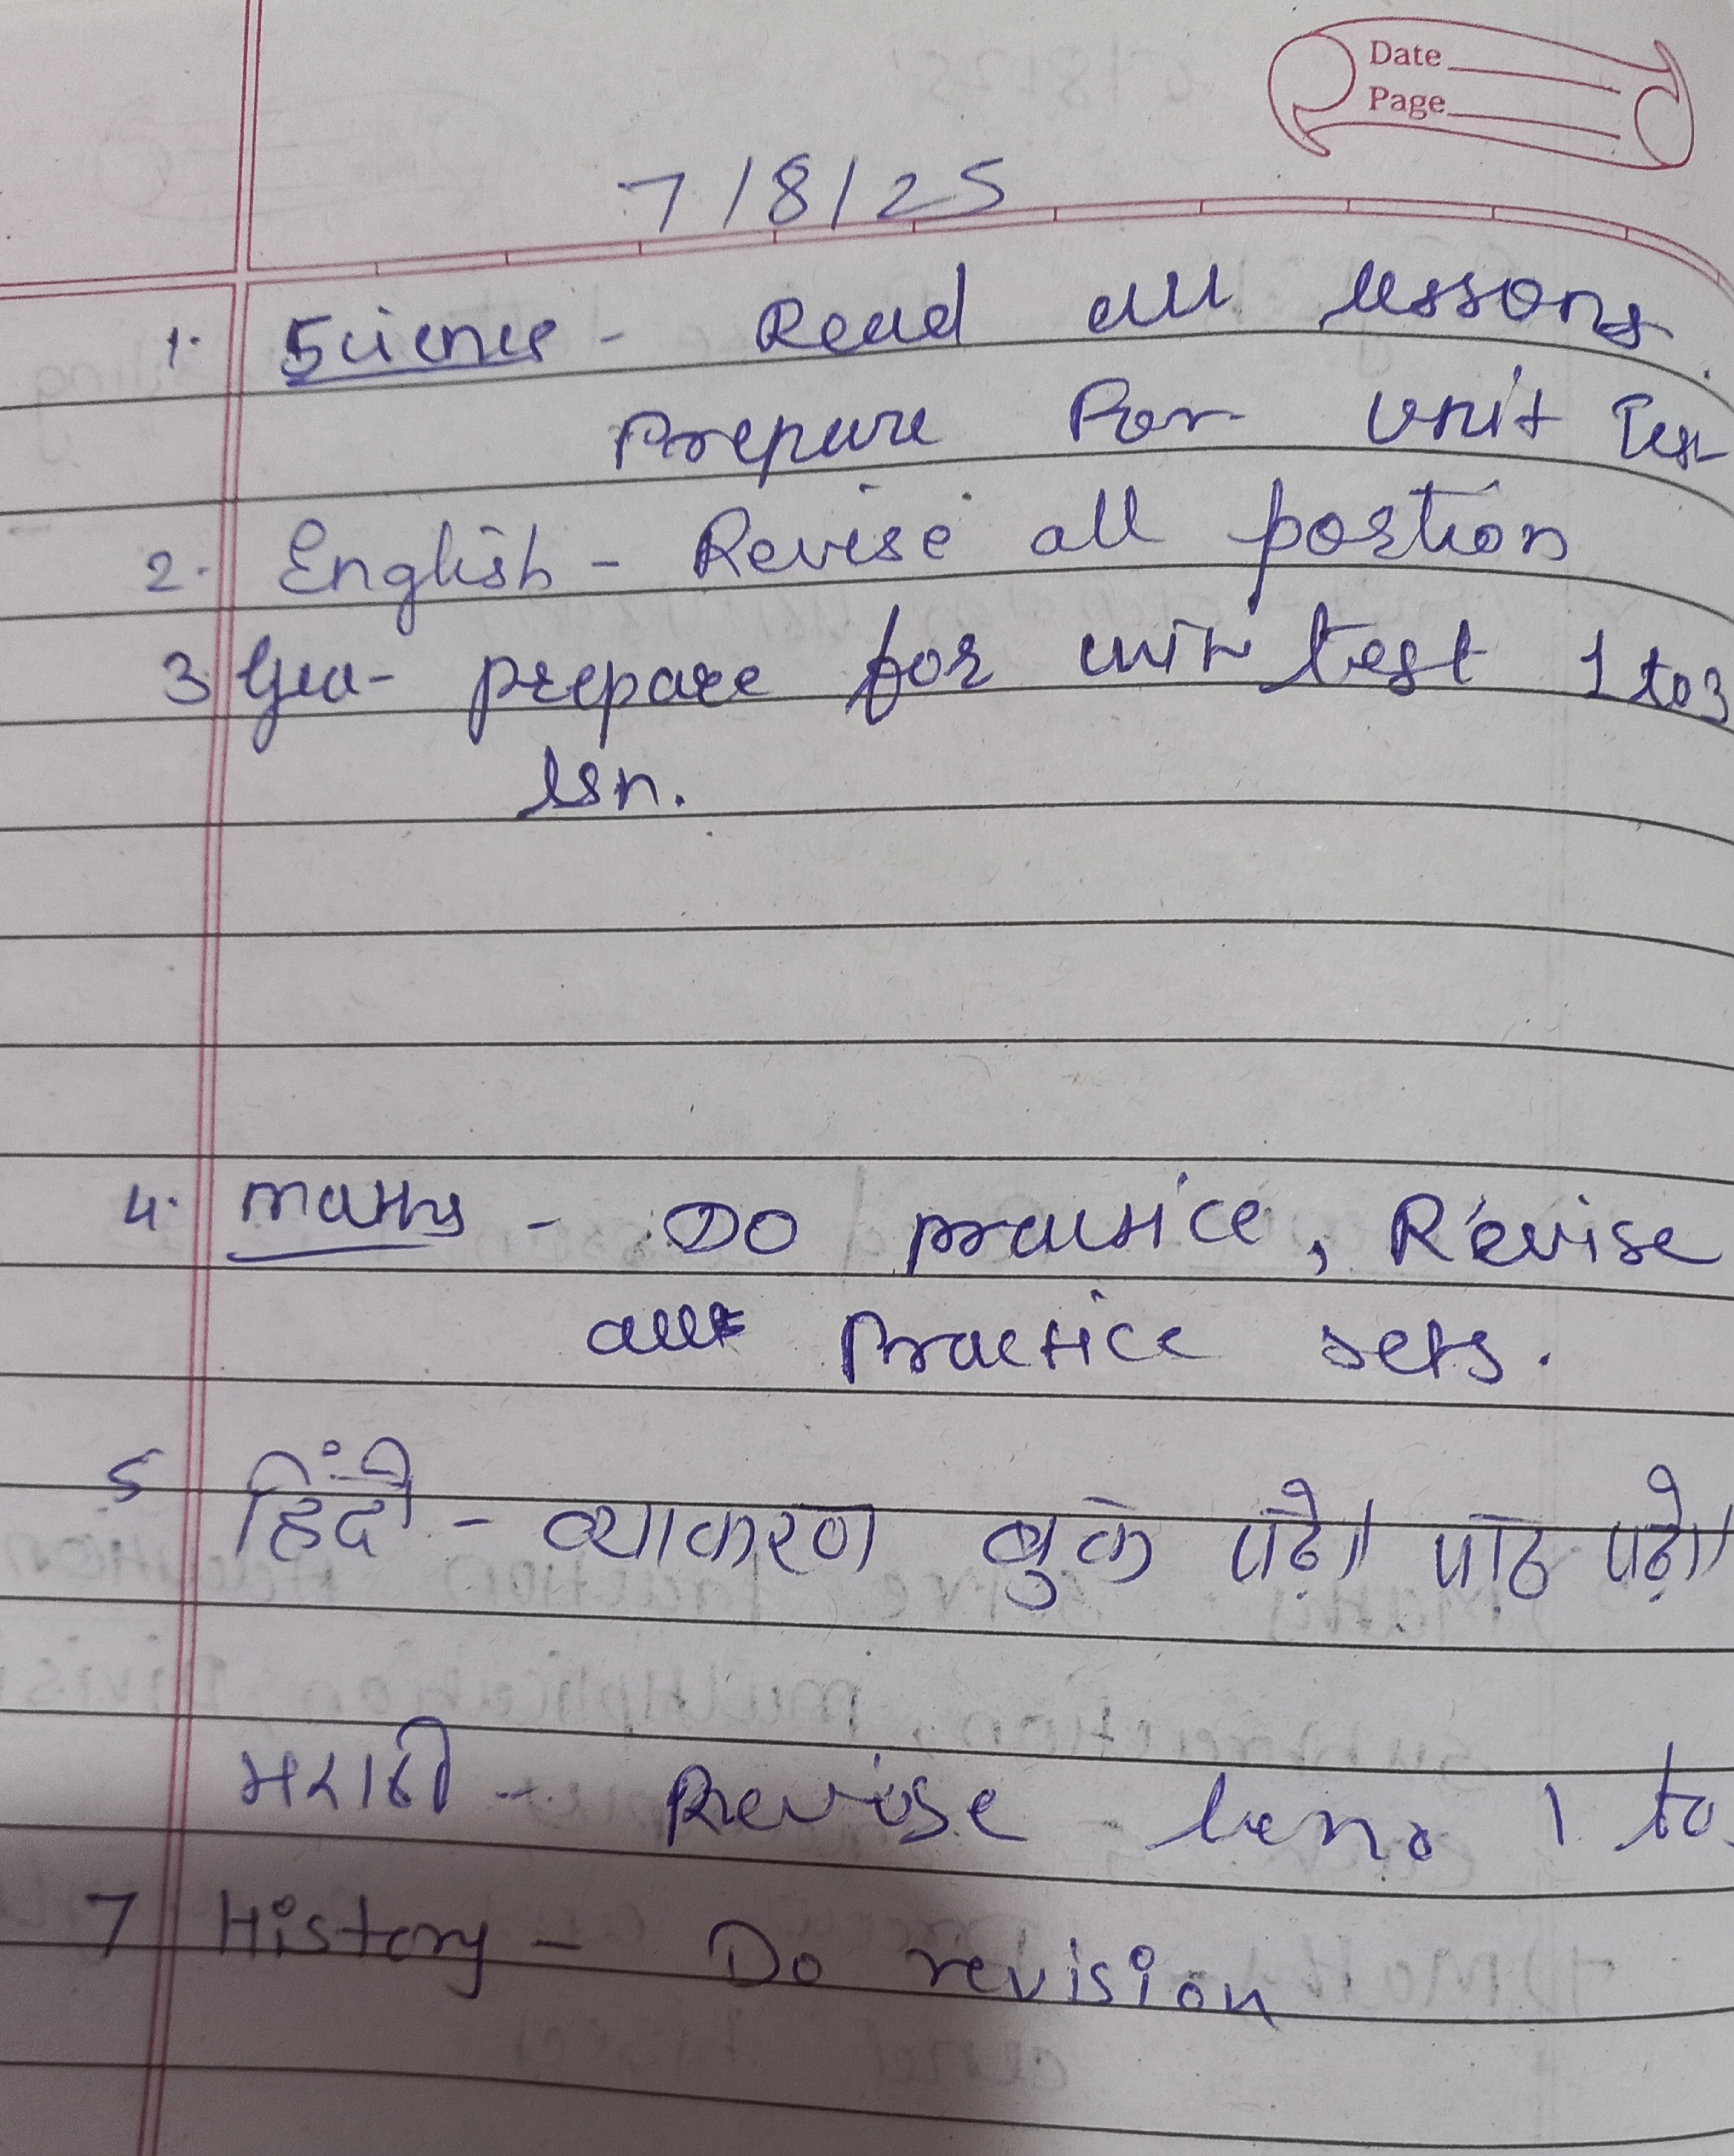 Date
Page
7/8/25
1. Science - Read all lessons.
Prepare for unit Test
2. English - Revise all portion
3 Geo - prepare for unit test 1 to 3
lsn.
4. maths - Do practice, Revise
all practice sets.
5 हिंदी - व्याकरण बुक पढ़ो। पाठ पढ़ो।
मराठी - Revise 1 to
7 History - Do revision